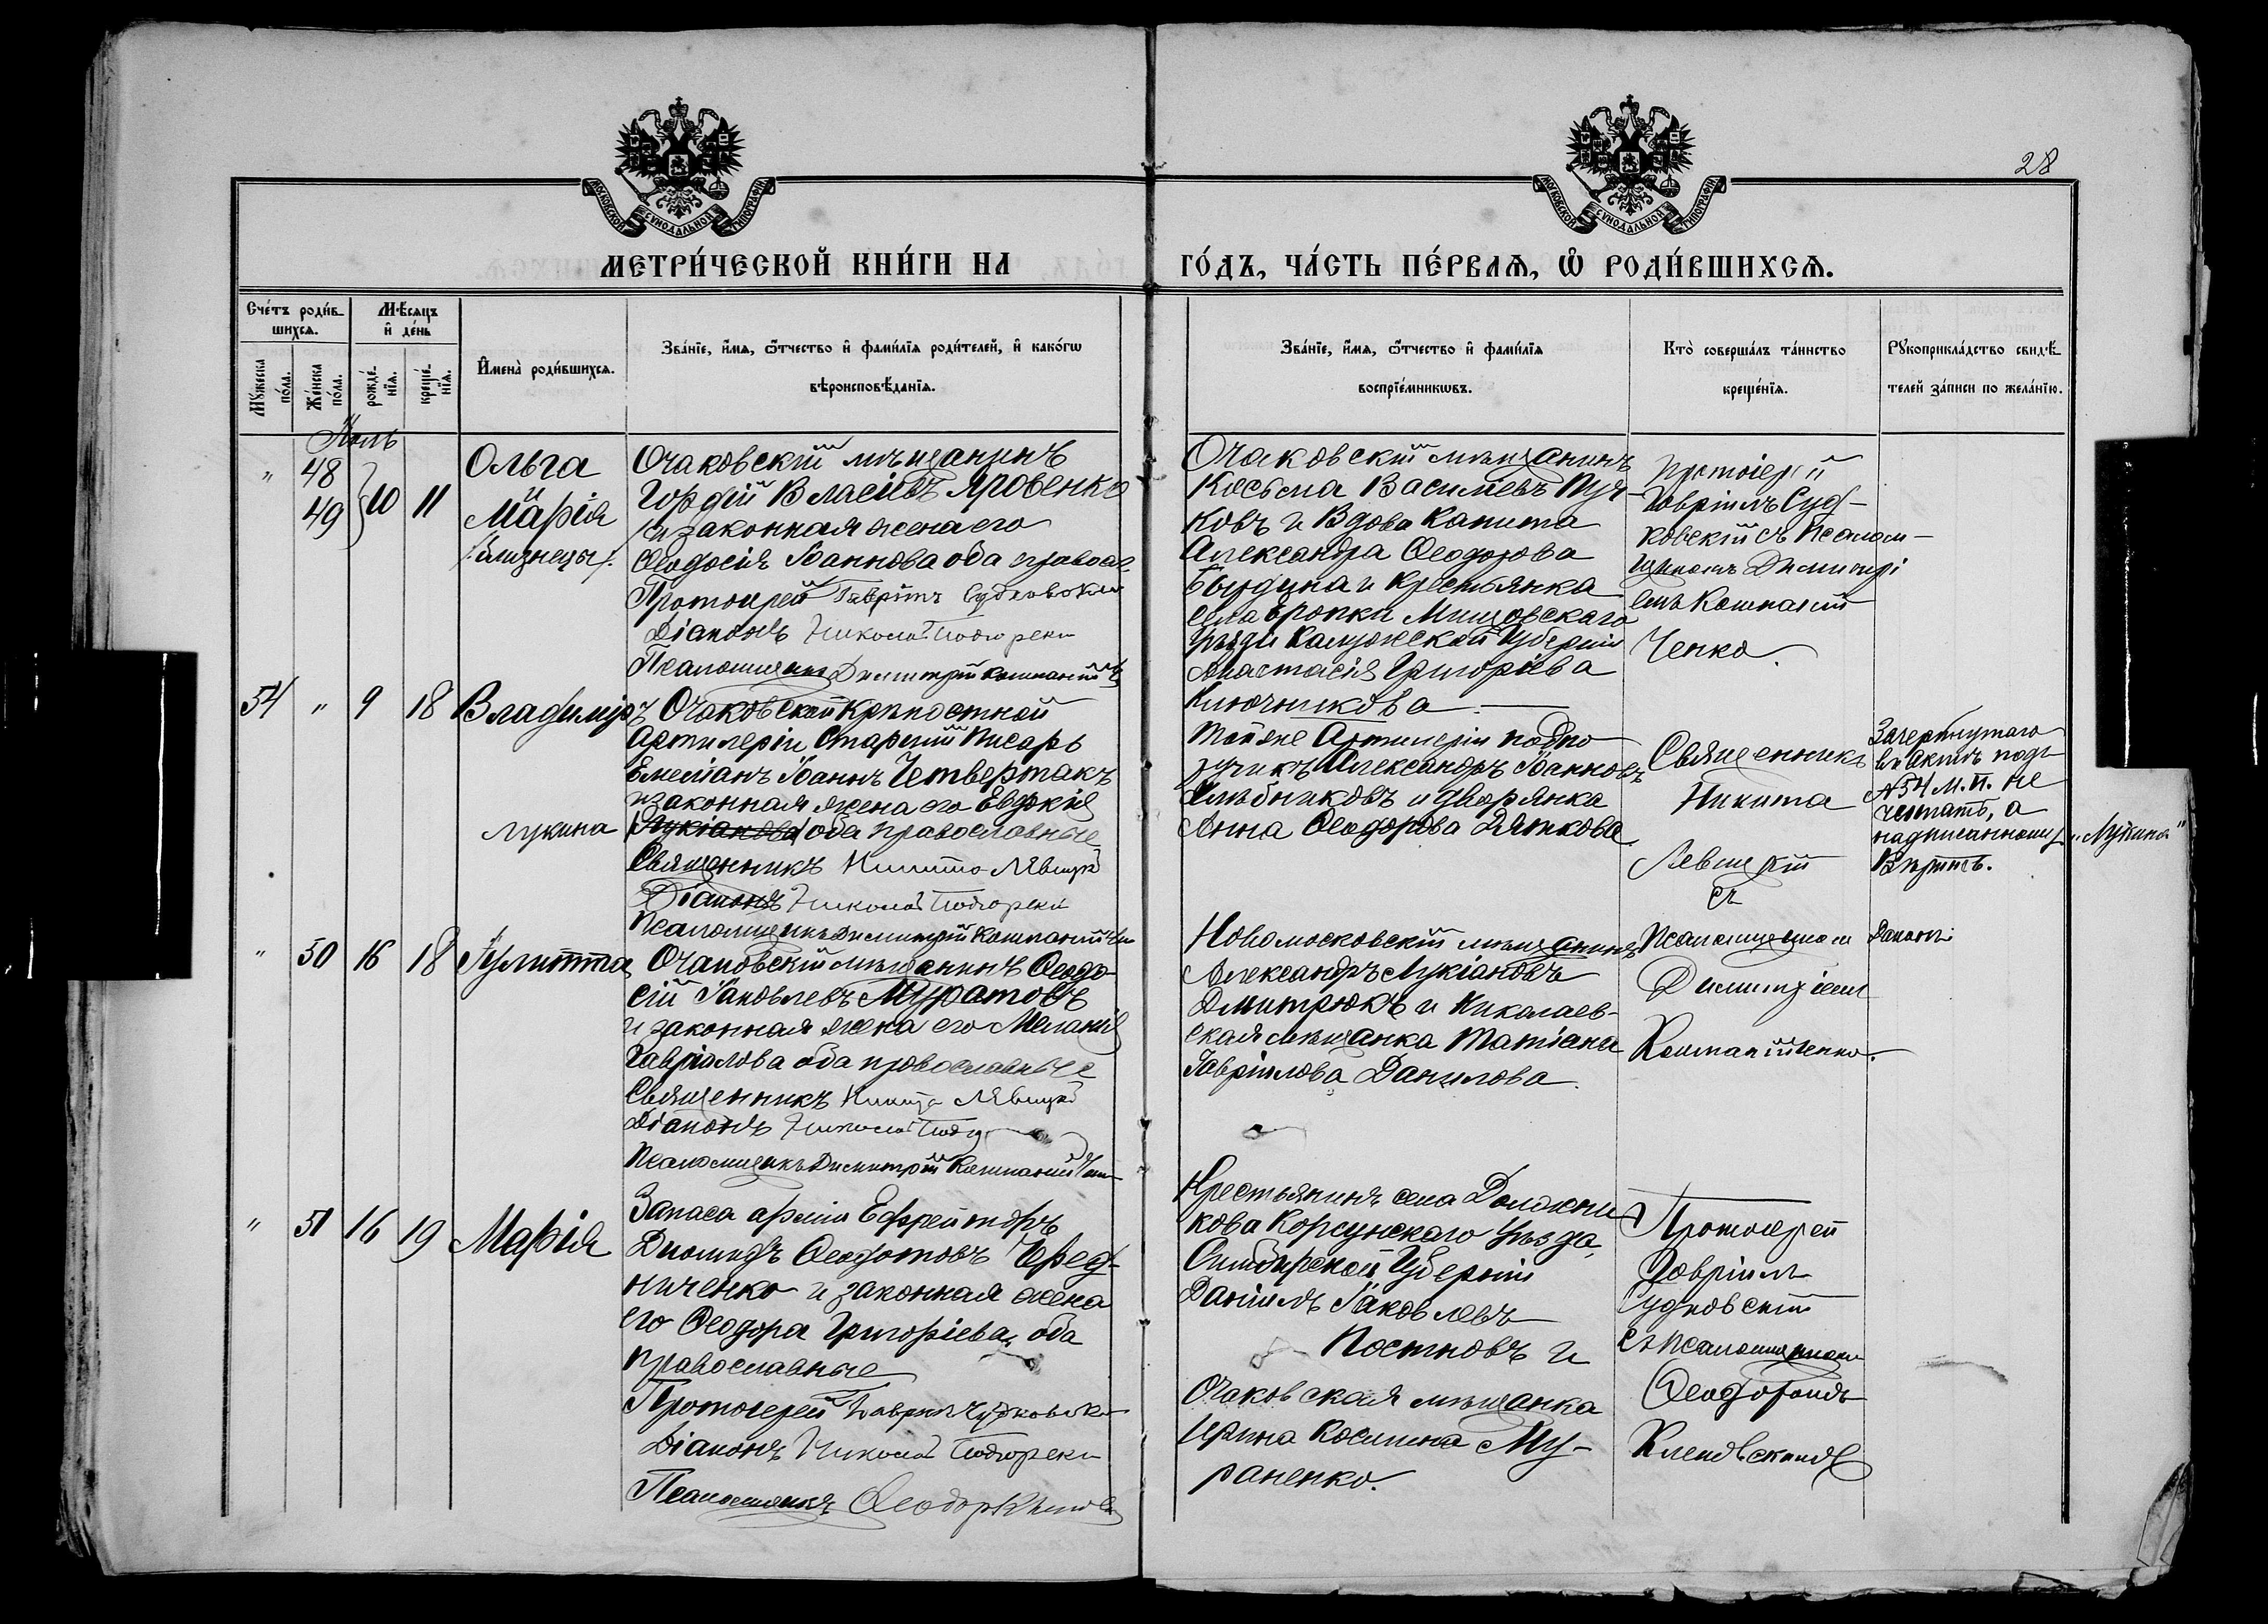 28
МОСКОВСКОЙ СѴНОДАЛЬНОЙ ТИПОГРАФІИ
МОСКОВСКОЙ СѴНОДАЛЬНОЙ ТИПОГРАФІИ
МЕТРИ́ЧЕСКОЙ КНИ́ГИ НА ГО́ДЪ, ЧА́СТЬ ПЕ́РВАѦ, Ѽ РОДИ́ВШИХСѦ.
Сче́тъ роди́в-
шихсѧ.
Мꙋжеска по́ла.
Же́нска по́ла.
Мѣ́сѧцъ
и҆ де́нь
рожде́-
нїѧ.
креще́-
нїѧ.
И҆мена̀ роди́вшихсѧ.
Зва́нїе, и҆́мѧ, ѻ҆́тчество и҆ фами́лїѧ роди́телей, и҆ како́гѡ
вѣроисповѣ́данїѧ.
Зва́нїе, и҆́мѧ, ѻ҆́тчество и҆ фами́лїѧ
воспрїе́мникѡвъ.
Кто̀ соверша́лъ та́инство
креще́нїѧ.
Рꙋкоприкла́дство свидѣ́-
телей за́писи по жела́нїю.
"
48
49
10
11
Ольга
Марія
/близнецы/.
Очаковскій мѣщанинъ
Гордій Власіевъ Яровенко
и законная жена его
Ѳеодосія Іоаннова оба правосл.
Протоіерей Гавріилъ Судковскій
Діаконъ Николай Подгорскі
Псаломщикъ Димитрій
Очаковскій мѣщанинъ
Косьма Васильевъ Пуч-
ковъ и Вдова Капита
Александра Ѳеодорова
и Крестьянка
села Мищовскаго
уѣзда Калужской Губерніи
Анастасія Григоріева
Ключникова
Протоіерей
Гавріилъ Суд-
ковскій съ Псалом-
щикомъ Димитрі
емъ
Ченко.
54
"
9
18
Владиміръ
Очаковской Крѣпостной
Артилеріи Старшій Писарь
Емеліанъ Іоаннъ Четвертакъ
и законная жена его Евдокія
Лукина
/Лукіанова/ оба православные
Священникъ Никита Лѣвицкій
Діаконъ Николай Подгорскі
Псаломщикъ Димитрій
Той же Артилеріи подпо
ручикъ Александръ Іоанновъ
Хлѣбниковъ и дворянка
Анна Ѳеодорова Дяткова.
Священникъ
Никита
Левицкій
съ
Зачеркнутаго
въ Актѣ подъ
№ 54 М. п. не
читать, а
надписанному „Лукина"
Вѣрить.
"
50
16
18
Іулитта
Очаковскій мѣщанинъ Ѳеодо-
сій Іаковлевъ Муратовъ
и законная жена его Меланія
Гавріилова оба православные
Священникъ Никита Лѣвицкій
Діаконъ Николай
Псаломщикъ Димитрій
Новомосковскій мѣщанинъ
Александръ Лукіановъ
Дмитрюкъ и Николаев-
ская мѣщанка Татіана
Гавріилова Данилова.
Псаломщиком
Димитріемъ
"
51
16
19
Марія
Запаса арміи Ефрейторъ
Діомидъ Ѳеодотовъ Черед-
ниченко и законная жена
его Ѳеодора Григоріева, оба
православные
Протоіерей Гавріилъ Судковскі
Діаконъ Николай Подгорскі
Псаломщикъ Ѳеодоръ
Крестьянинъ села
кова Корсунскаго уѣзда,
Симбирской Губерніи
Даніилъ Іаковлевъ
Постновъ и
Очаковская мѣщанка
Ирина Космина Му-
раненко.
Протоіерей
Гавріилъ
Судковскій
съ Псаломщикомъ
Ѳеодоромъ